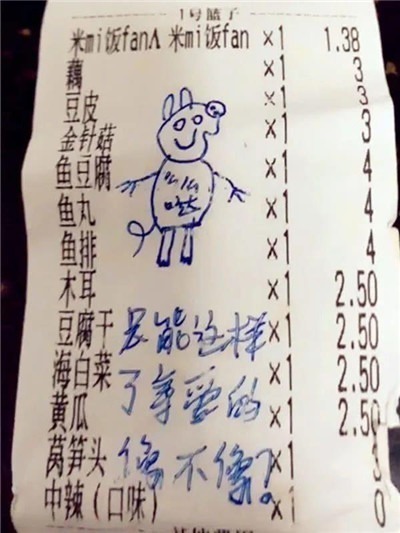 1号篮子
米mi饭fanA 米mi饭fan ×1 1.38
藕 ×1 3
豆皮 ×1 3
金针菇 ×1 3
鱼豆腐 ×1 4
鱼丸 ×1 4
鱼排 ×1 4
木耳 ×1 2.50
豆腐干 ×1 2.50
海白菜 ×1 2.50
黄瓜 ×1 2.50
莴笋头 ×1 3
中辣（口味） ×1 0
么么
哒
只能这样
了亲爱的
像不像？